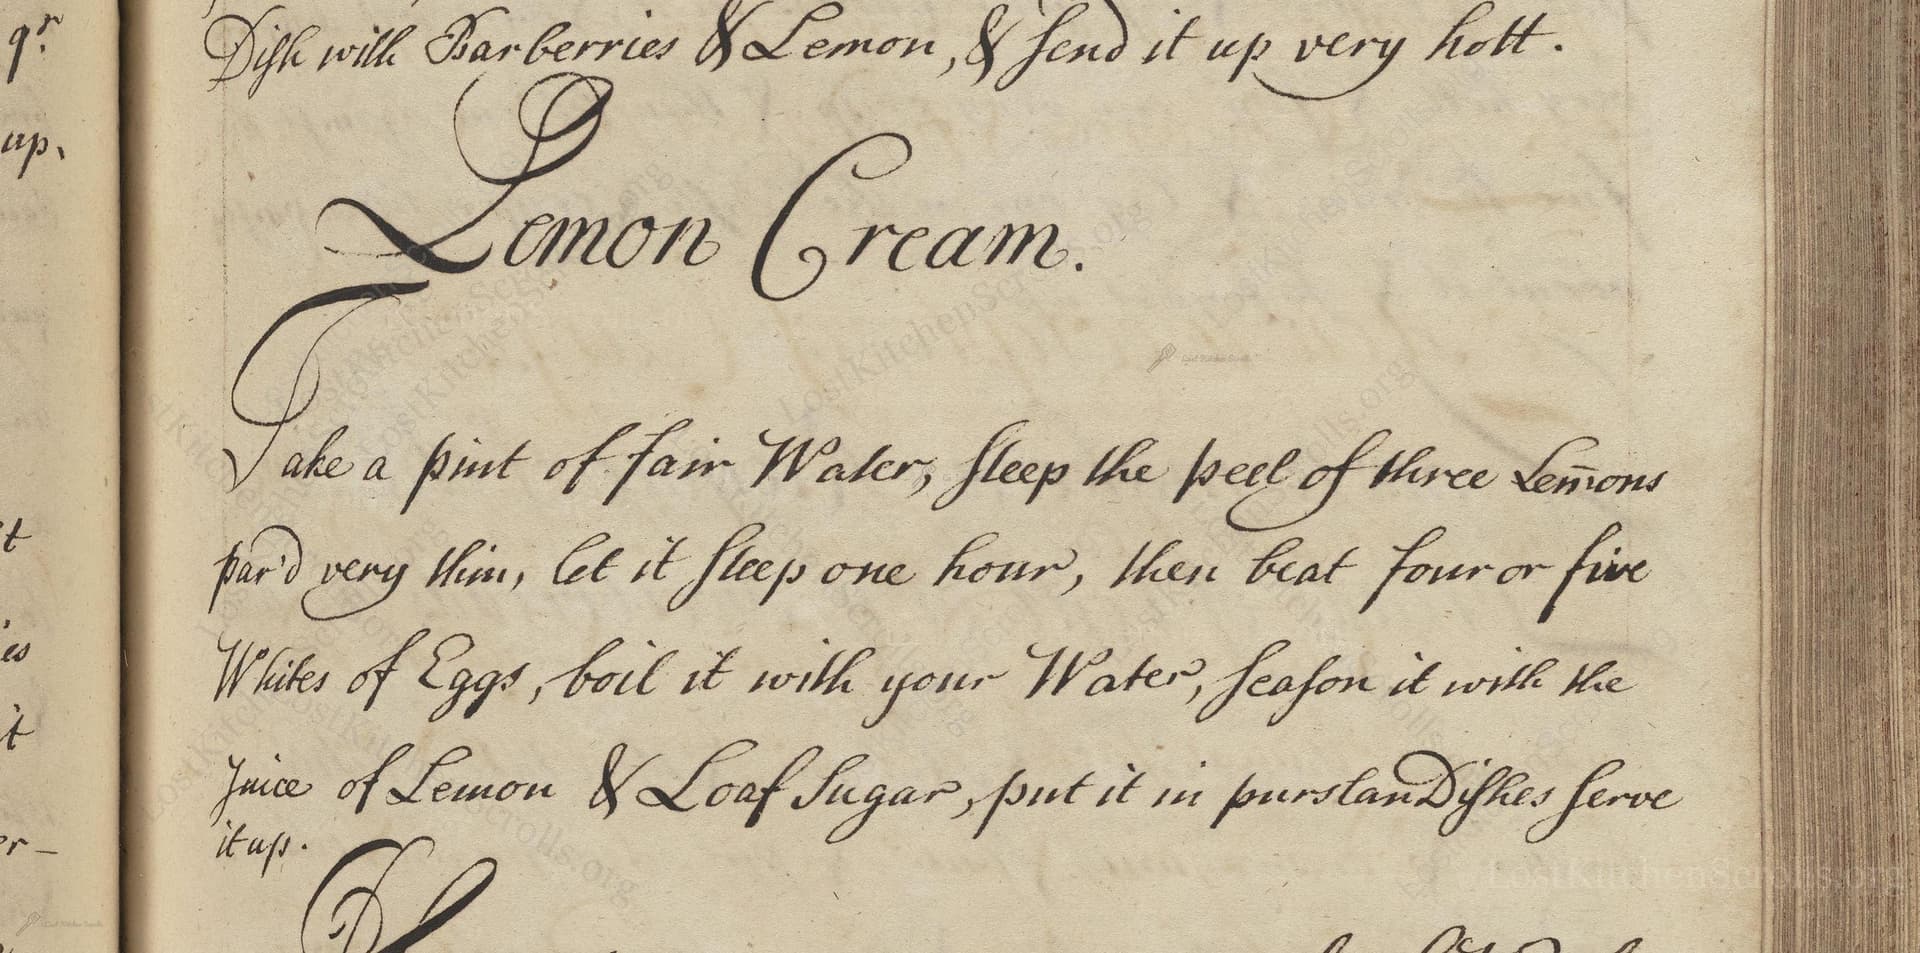 qr.
up.
Dish with Barberries & Lemon, & send it up very hott.
Lemon Cream.
Take a pint of fair Water, steep the peel of three Lem̄ons
par'd very thin, let it steep one hour, then beat four or five
Whites of Eggs, boil it with your Water, season it with the
Juice of Lemon & Loaf Sugar, put it in purslan Dishes serve
it up.
t
es
it
er-
LostKitchenScrolls.org